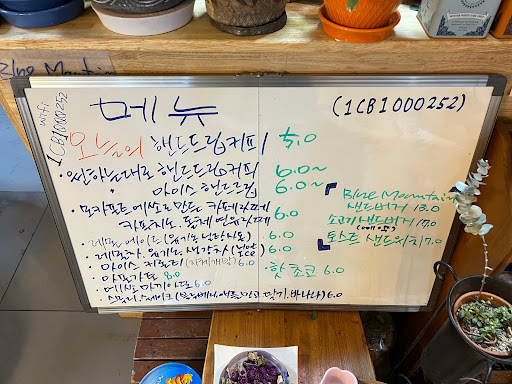 Blue Mountain
wifi
1CB1000252
메 뉴
(1CB1000252)
오늘의 핸드드립커피 5.0
· 원하는대로 핸드드립커피 6.0~
" 아이스 핸드드립 6.0~
· 모카포트 에쏘로 만든 카페라떼 6.0
카푸치노. 돌체 연유라떼
· 레몬 에이드 6.0
· 레몬차. 생강차 6.0
· 아이스 커피 6.0
· 아포가토 8.0
· 에쏘 마키아또 6.0
· 스무디/쉐이크 (블루베리. 애플망고. 딸기. 바나나) 6.0
· 핫 초코 6.0
Blue Mountain
샌드버거 13.0
소고기 샌드버거 17.0
토스트 샌드위치 7.0